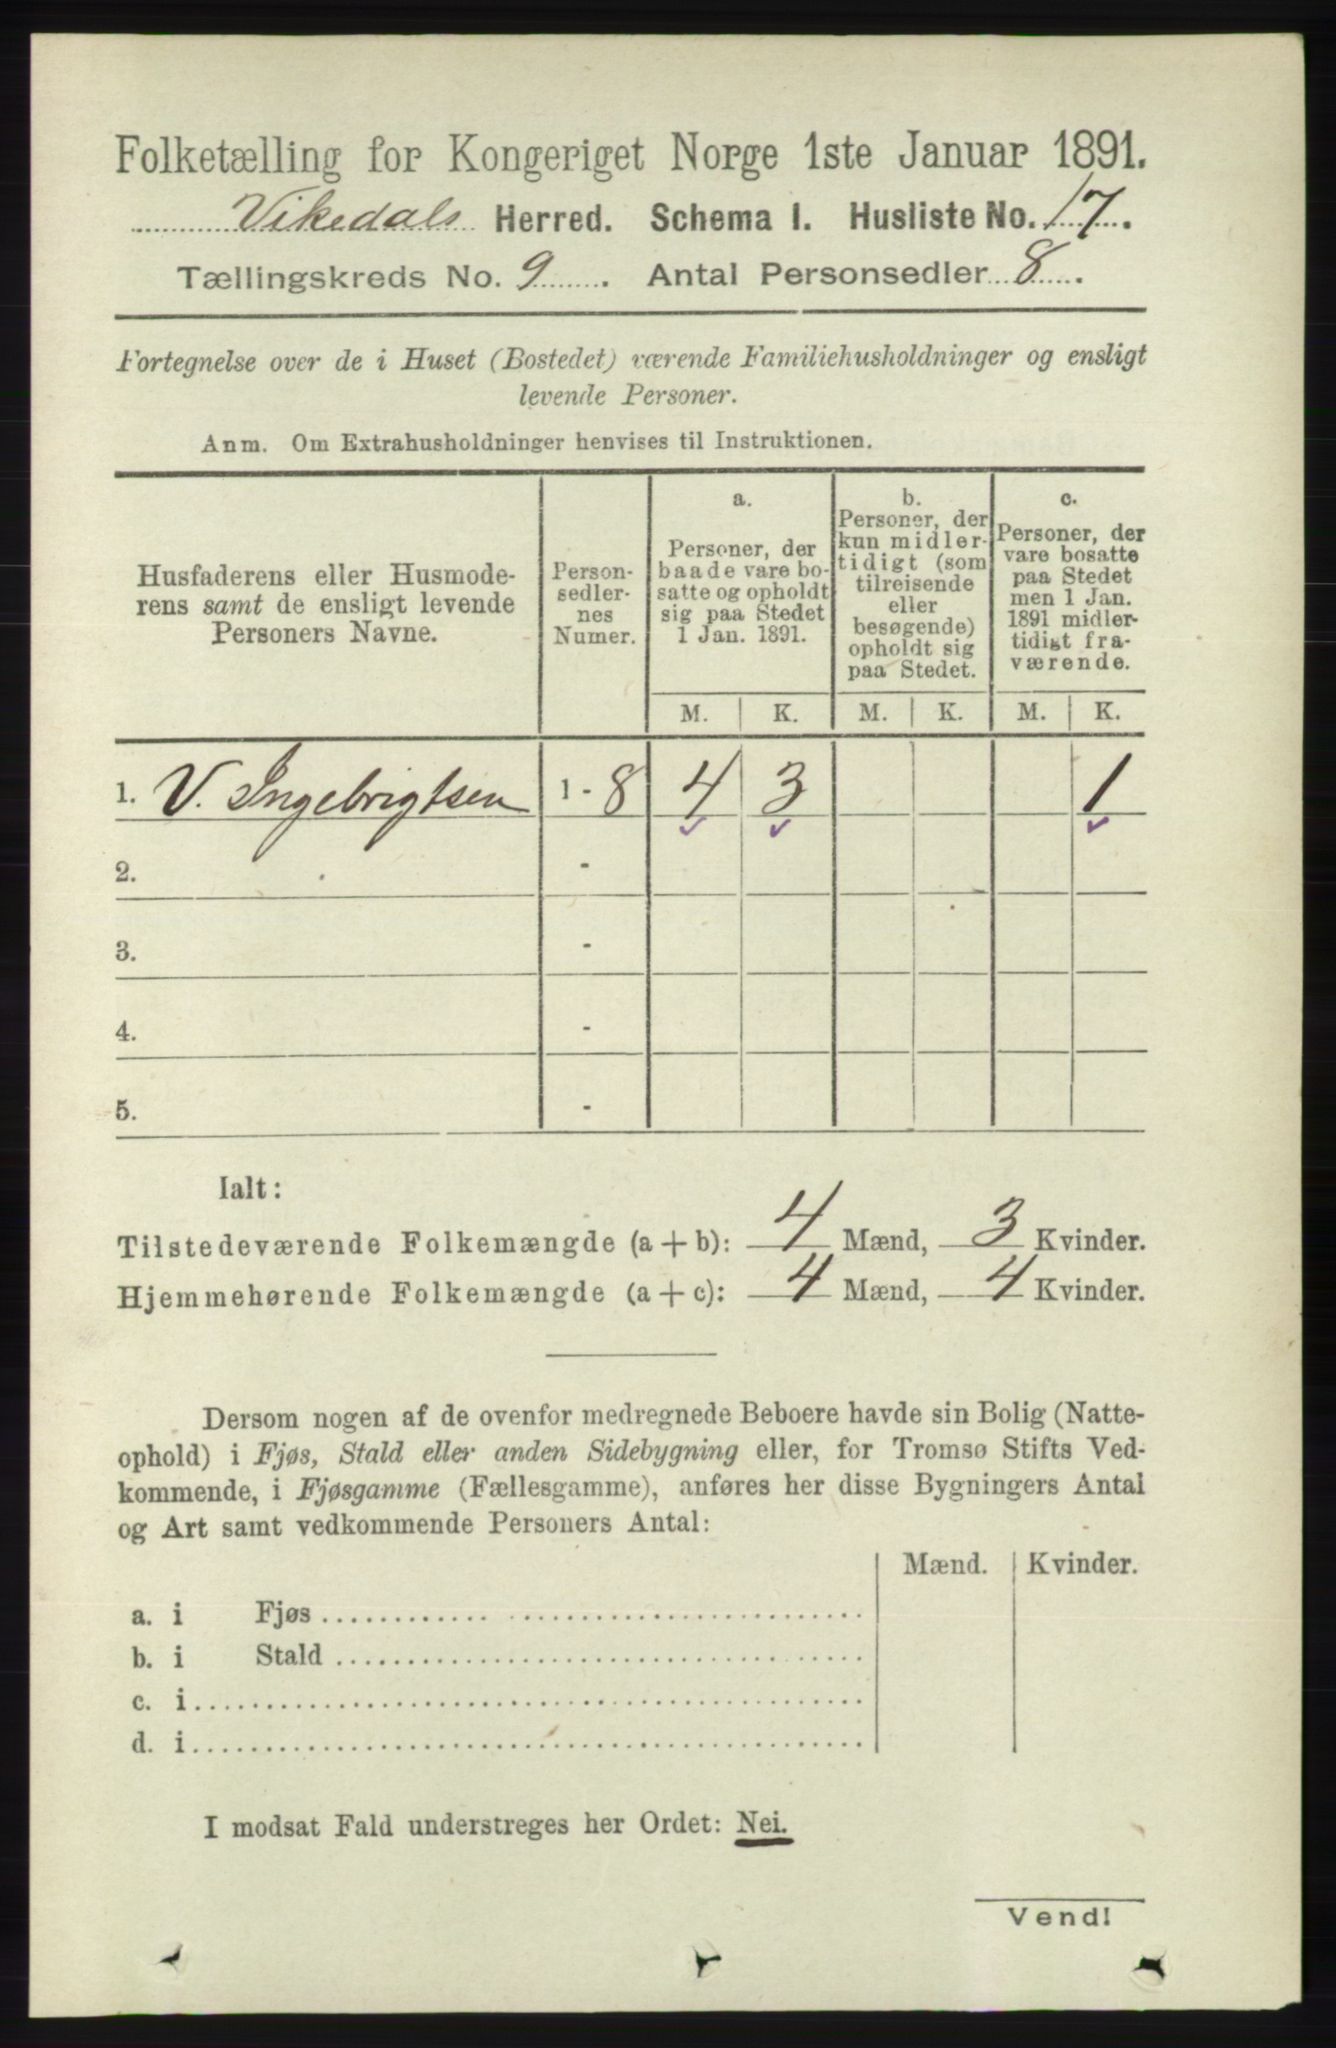 Folketælling for Kongeriget Norge 1ste Januar 1891.
Vikedals Herred. Schema I. Husliste No. 17.
Tællingskreds No. 9. Antal Personsedler 8.
Fortegnelse over de i Huset (Bostedet) værende Familiehusholdninger og ensligt
levende Personer.
Anm. Om Extrahusholdninger henvises til Instruktionen.
Husfaderens eller Husmode-
rens samt de ensligt levende
Personers Navne.
Person-
sedler-
nes
Numer.
a.
Personer, der
baade vare bo-
satte og opholdt
sig paa Stedet
1 Jan. 1891.
b.
Personer, der
kun midler-
tidigt (som
tilreisende
eller
besøgende)
opholdt sig
paa Stedet.
c.
Personer, der
vare bosatte
paa Stedet
men 1 Jan.
1891 midler-
tidigt fra-
værende.
M. K. M. K. M. K.
1. V. Ingebrigtsen 1 - 8 4 3 1
2. -
3. -
4. -
5. -
Ialt:
Tilstedeværende Folkemængde (a + b): 4 Mænd, 3 Kvinder.
Hjemmehørende Folkemængde (a + c): 4 Mænd, 4 Kvinder.
Dersom nogen af de ovenfor medregnede Beboere havde sin Bolig (Natte-
ophold) i Fjøs, Stald eller anden Sidebygning eller, for Tromsø Stifts Ved-
kommende, i Fjøsgamme (Fællesgamme), anføres her disse Bygningers Antal
og Art samt vedkommende Personers Antal:
Mænd. Kvinder.
a. i Fjøs
b. i Stald
c. i
d. i
I modsat Fald understreges her Ordet: Nei.
Vend!